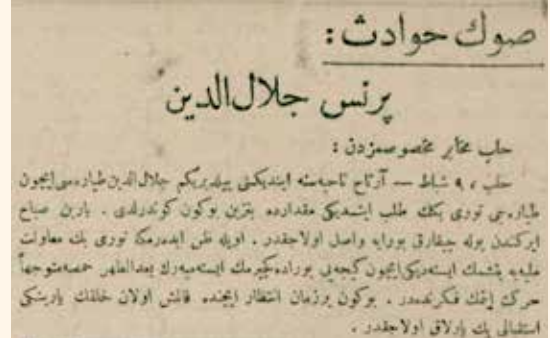 صوك حوادث :
پرنس جلال الدين
حلب مخابر مخصوصمزدن :
حلب ، ٩ شباط — آرتاح ناحيه‌سنه اينديكنى بيلديريكم جلال الدين طياره‌سى ايچون
طياره‌جى نورى بكك طلب ايتديكى مقدارده بنزين بوكون كوندرلدى . يارين صباح
ايركندن يوله چيقارق بورايه واصل اولاجقدر . اويله ظن ايدرمكه نورى بك معاونت
عليه‌يه يتشمك ايسته‌ديكى ايچون كيجه‌يى بوراده كچيرمك ايسته‌ميه‌رك بعدالظهر حمصه متوجهاً
حركت ايتمك فكرنده‌در . بوكون برزمان انتظار ايچنده قالمش اولان خلقك يارينكى
استقبالى پك پارلاق اولاجقدر .